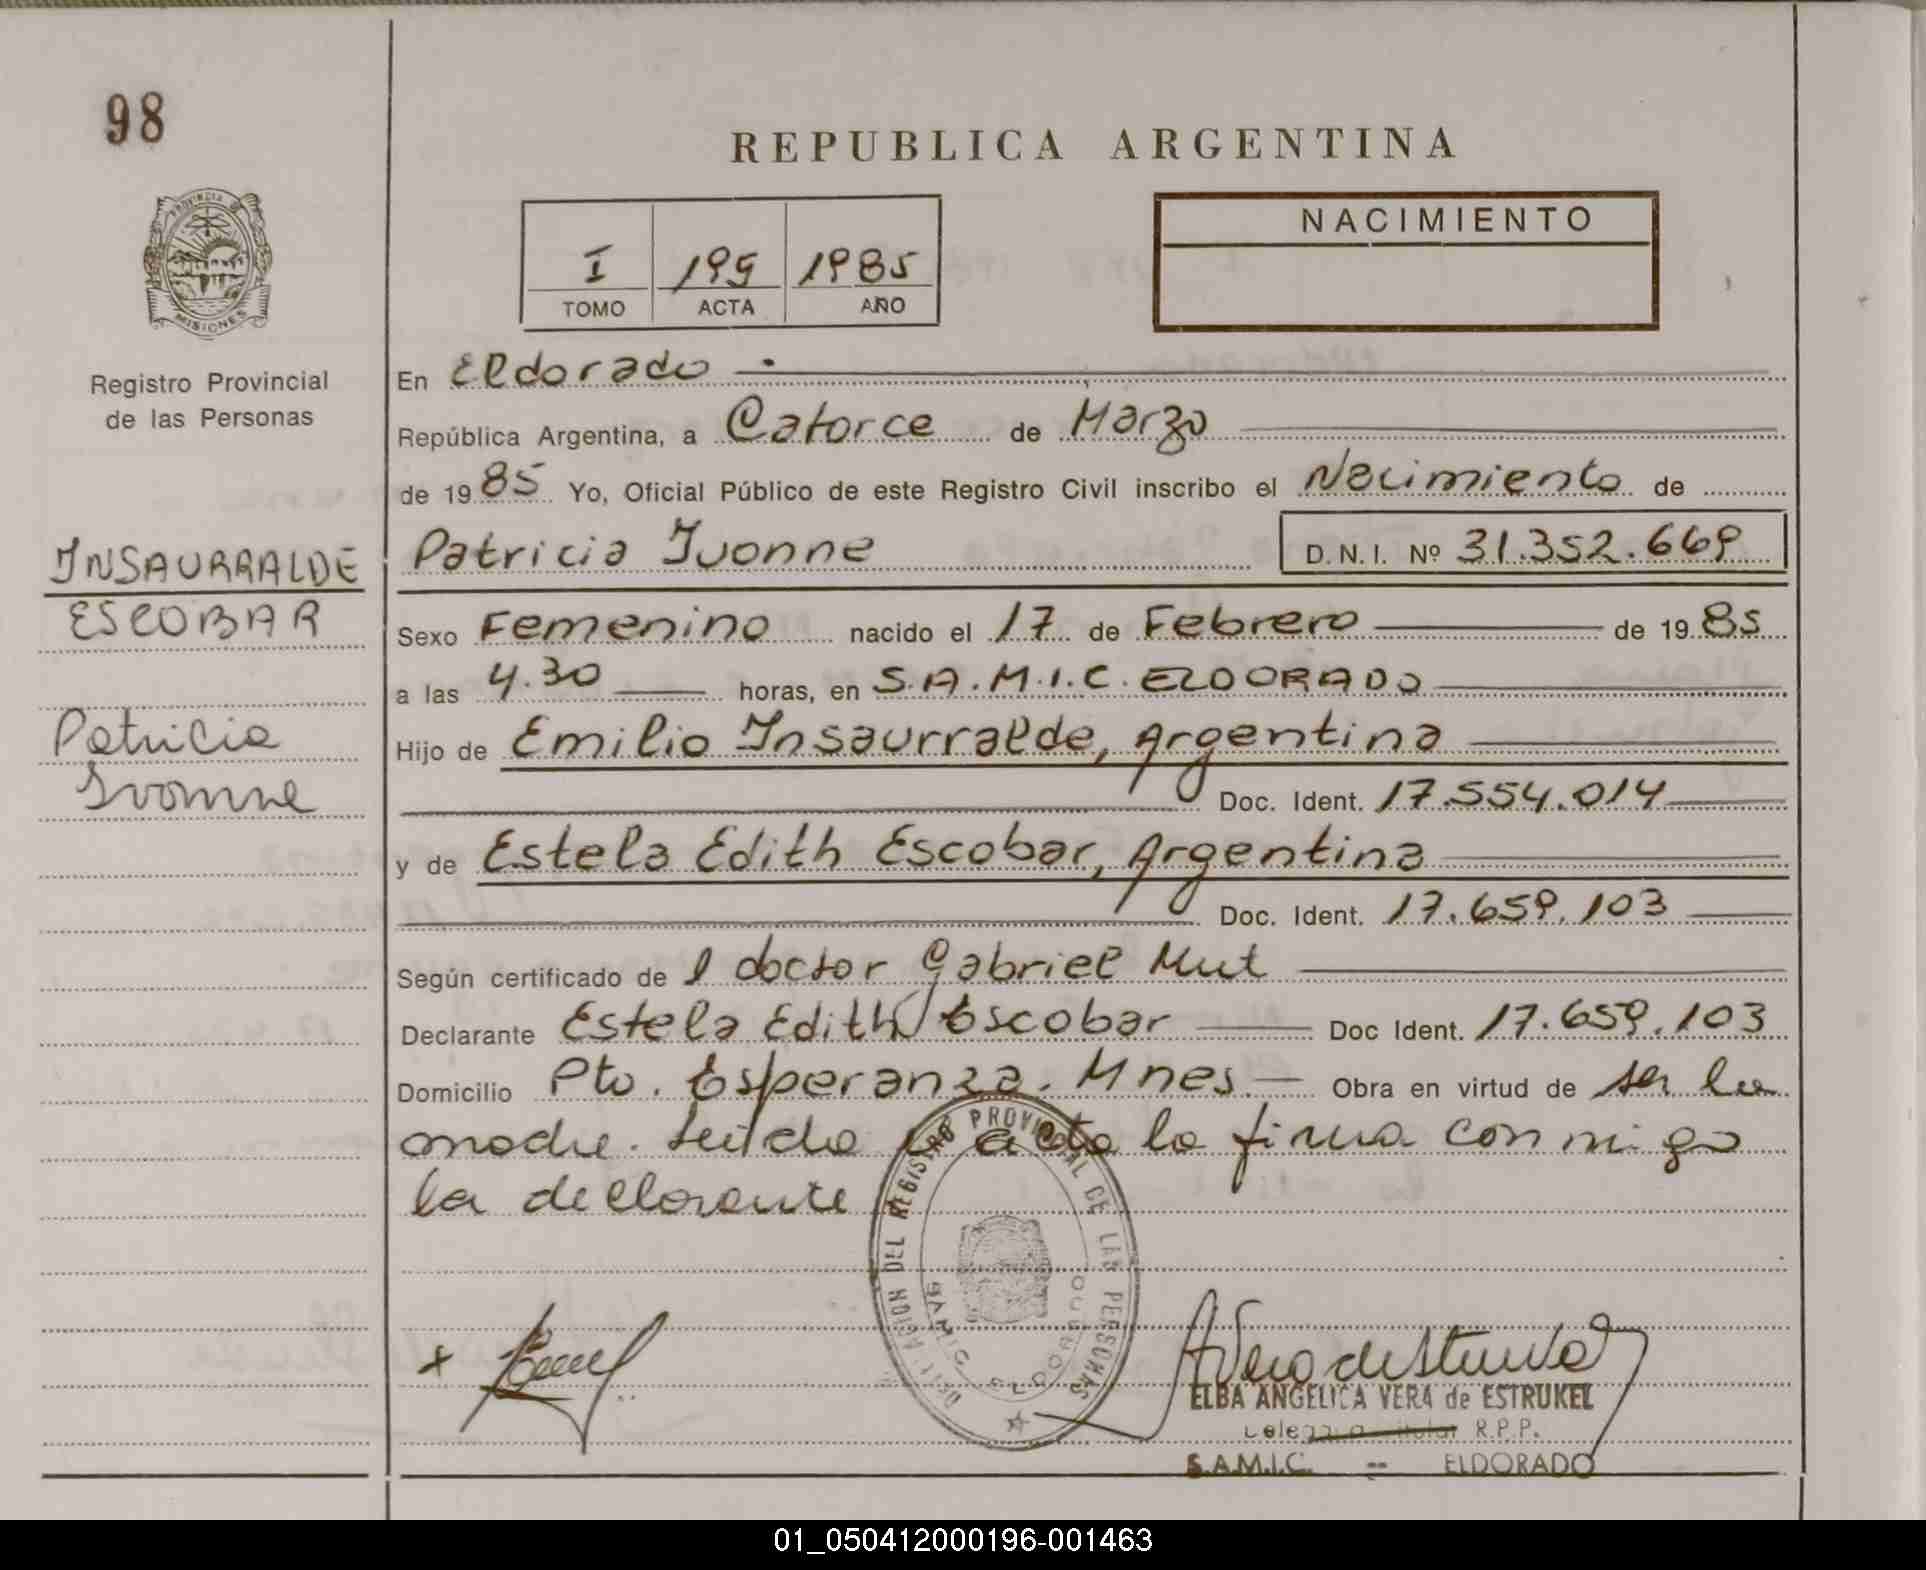 98
REPUBLICA ARGENTINA
PROVINCIA D
MISIONES
I 195 1985
TOMO ACTA AÑO
NACIMIENTO
Registro Provincial
de las Personas
En Eldorado
República Argentina, a Catorce de Marzo
de 1985 Yo, Oficial Público de este Registro Civil inscribo el Nacimiento de
INSAURRALDE
ESCOBAR
Patricia
Ivonne
Patricia Ivonne D.N.I. Nº 31.352.669
Sexo Femenino nacido el 17 de Febrero de 1985
a las 4.30 horas, en S.A.M.I.C. ELDORADO
Hijo de Emilio Insaurralde, Argentina
Doc. Ident. 17.554.014
y de Estela Edith Escobar, Argentina
Doc. Ident. 17.659.103
Según certificado de l doctor Gabriel Mut
Declarante Estela Edith Escobar Doc Ident. 17.659.103
Domicilio Pto. Esperanza. Mnes. Obra en virtud de ser la
madre. Leído el acta la firma conmigo
la declarante
DEL REGISTRO PROVINCIAL DE LAS PERSONAS
SAMIC
ELDORADO
ELBA ANGELICA VERA de ESTRUKEL
R.P.P.
S.A.M.I.C. -- ELDORADO
01_050412000196-001463